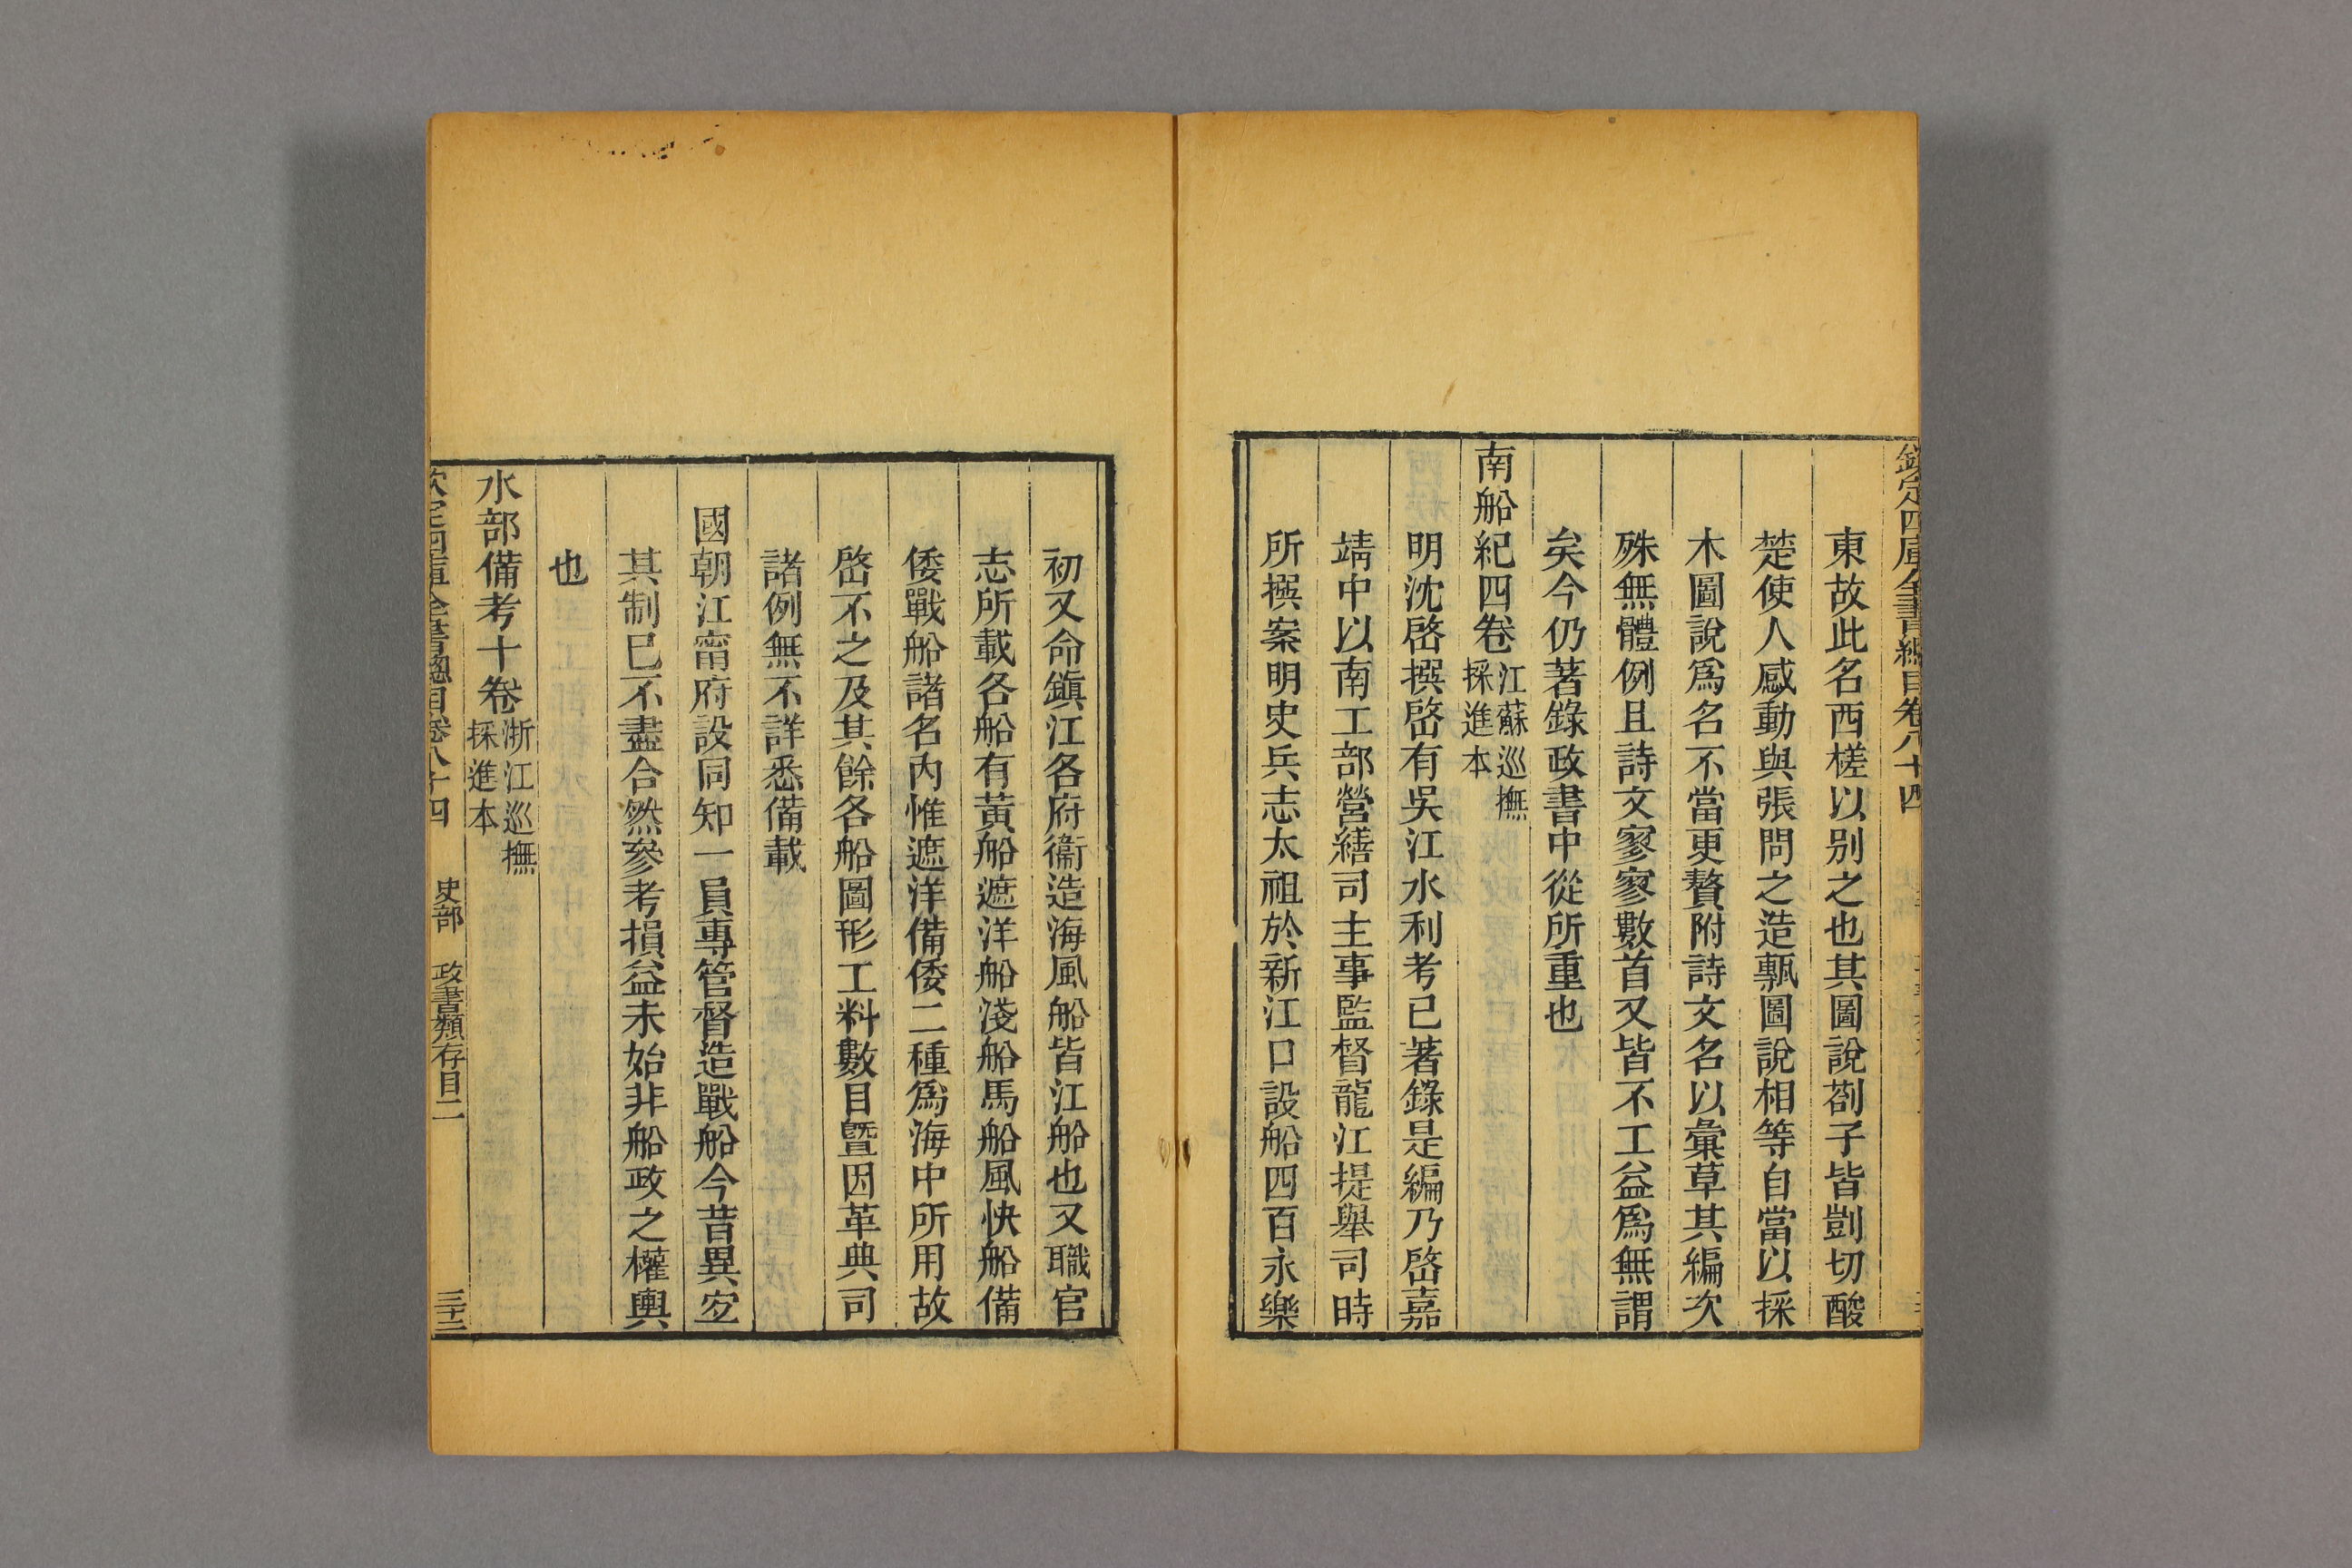 欽定四庫全書總目卷八十四
東故此名西槎以别之也其圖說劄子皆剴切酸
楚使人感動與張問之造甎圖說相等自當以採
木圖說爲名不當更贅附詩文名以彙草其編次
殊無體例且詩文寥寥數首又皆不工益爲無謂
矣今仍著錄政書中從所重也
南船紀四卷江蘇巡撫
採進本
明沈啓撰啓有吳江水利考已著錄是編乃啓嘉
靖中以南工部營繕司主事監督龍江提舉司時
所撰案明史兵志太祖於新江口設船四百永樂
初又命鎭江各府衞造海風船皆江船也又職官
志所載各船有黃船遮洋船淺船馬船風快船備
倭戰船諸名內惟遮洋備倭二種爲海中所用故
啓不之及其餘各船圖形工料數目曁因革典司
諸例無不詳悉備載
國朝江甯府設同知一員專管督造戰船今昔異宐
其制已不盡合然參考損益未始非船政之權輿
也
水部備考十卷浙江巡撫
採進本
欽定四庫全書總目卷八十四 史部 政書類存目二 三十三